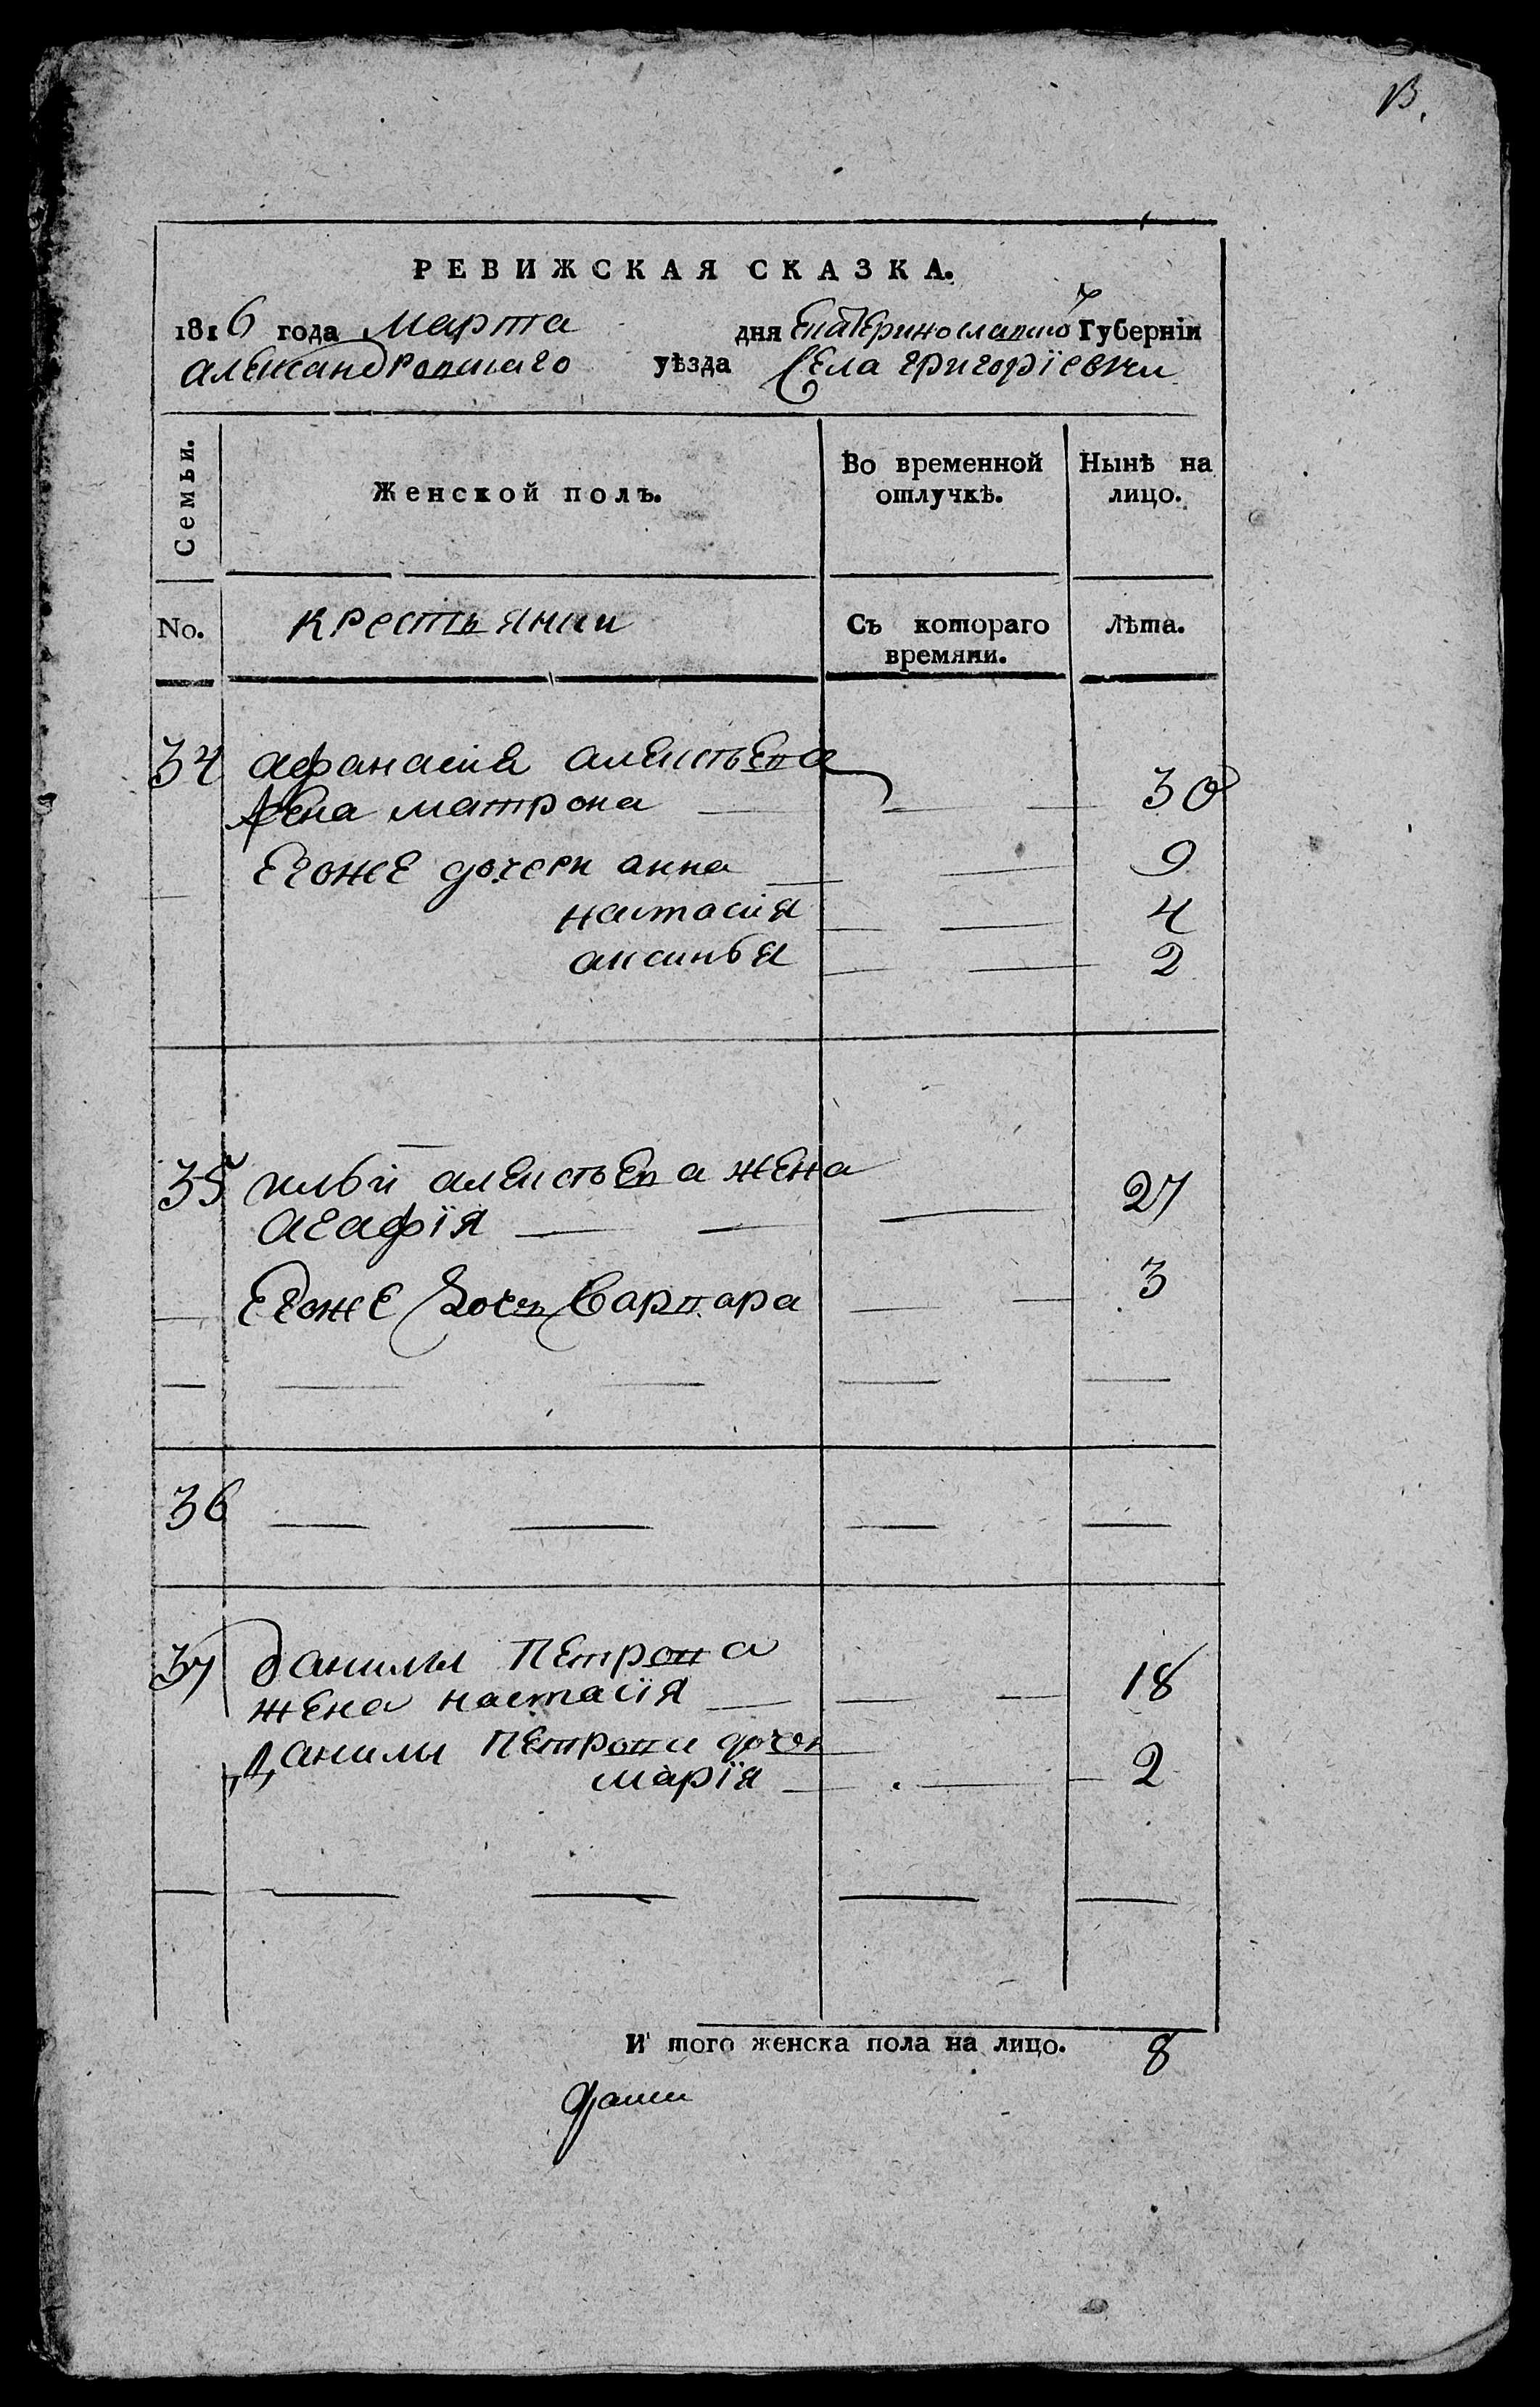 В.
РЕВИЖСКАЯ СКАЗКА.
1816 года Марта дня Екатеринославской Губерніи
александровскаго уѣзда Села григоріевки
Семьи. Женской полъ. Во временной отлучкѣ. Нынѣ на лицо.
No. крестьянки Съ котораго времяни. Лѣта.
34 афанасия алексѣева
жена матрона — — — 30
егоже дочери анна — — 9
настасия — — 4
аксинья — — 2
35 алексѣева жена
агафїя — — — 27
егоже дочь варвара — — 3
— — — — —
36 — — — —
37 данилы петрова
жена настасїя — — — 18
Данилы петрова дочь
марїя — — — 2
— — — — —
И того женска пола на лицо. 8